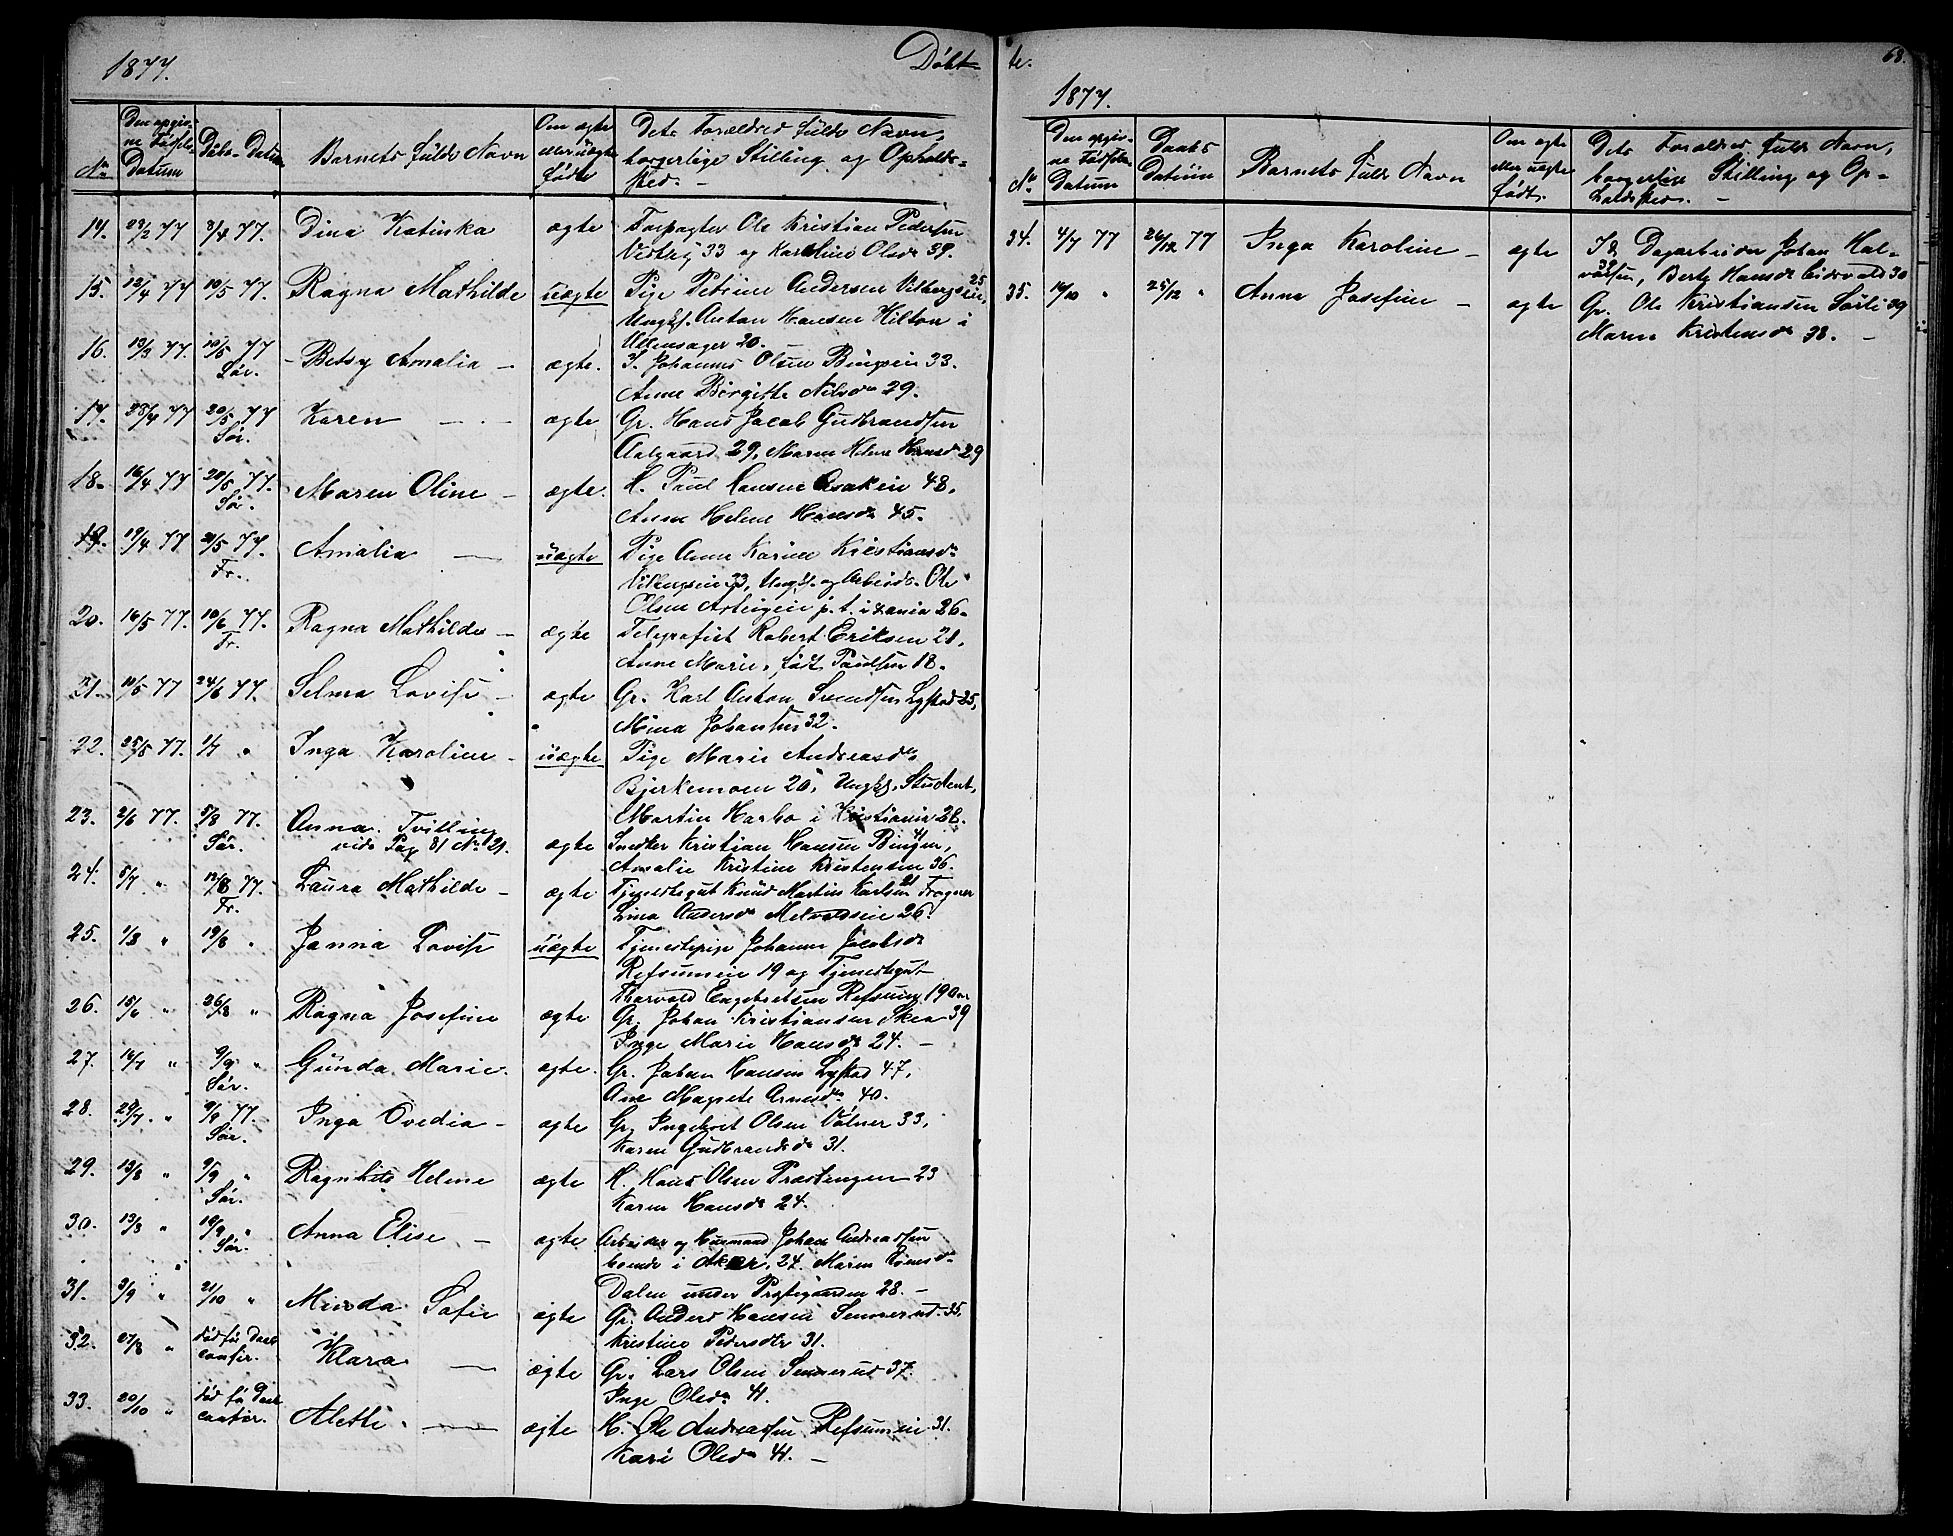 1877.
Døbt
No
Den opgivne Fødsels Datum
Daabs Datum
Barnets fulde Navn
Om ægte eller uægte fødte
Dets Forældres fulde Navn, borgerlige Stilling og Opholdssted. -
14. 27/2 77 3/4 77. Dina Katinka ægte Forpagter Ole Kristian Pedersen
Vestby 33 og Karoline Olsdr 39.
15. 12/4 77 10/5 77. Ragna Mathilde uægte Pige Petrine Andersen Vilbergseie, 25
Ungk. Anton Hansen Hilton i
Ullensager 20.
16. 13/3 77. 10/5 77 Sør. Betsy Amalia - ægte. I. Johannes Olsen Bingseie 33.
Anne Birgitte Nilsdr 29.
17. 28/4 77 20/5 77 Sør. Karen - - ægte Gr. Hans Jacob Gudbrandsen
Aalgaard 29, Maren Helene Hansdr 29
18. 16/4 77 20/5 77. Sør. Maren Oline - ægte. H. Paul Hansen Asakeie 48.
Anne Helene Hansdr 45.
19. 19/4 77 21/5 77. Fr. Amalia - uægte Pige Anne Karine Kristiansdr
Vilbergseie 33, Ungk. og Arbeids. Ole
Olsen Arteigeie p. t. i Xania 26.
20. 16/5 77. 10/6 77. Fr. Ragna Mathilde - ægte Telegrafist Robert Eriksen 21,
Anne Marie, født Paulsen 18.
21. 10/5 77 24/6 77. Selma Lovise - ægte Gr. Karl Anton Svendsen Lystad 25,
Mina Johansen 32.
22. 25/5 77. 1/7 " Inga Karoline - uægte Pige Marie Andreasdr
Bjerkemoen 20, Ungk. Student,
Martin Harbo i Kristiania 28.
23. 2/6 77. 5/8 77. Sør. Anna. Tvilling
vide Pag 81 No 21. ægte Snedker Kristian Hansen Bingen, 41
Amalie Kristine Kristensen 36.
24. 5/7 " 12/8 77. Fr. Laura Mathilde - ægte Tjenestegut Knud Martin Karlsen 21 Frogner
Lina Andersdr Melvoldseie 26.
25. 1/8 " 19/8 " Janna Lovise uægte Tjenestepige Johanne Jacobsdr
Refsumeie 19 og Tjenestegut
Thorvald Engebretsen Refsum 19 Aar
26. 15/6 " 26/8 " Ragna Josefine ægte Gr. Johan Kristiansen Skea 39
Inge Marie Hansdr 24. -
27. 14/7 " 9/9 " Sør. Gunda Marie. ægte. Gr. Johan Hansen Lystad 47,
Ane Magrete Arnesdr 40.
28. 29/7 " 9/9 77. Sør. Inga Ovedia - ægte Gr. Ingebret Olsen Vølner 33,
Karen Gudbrandsdr 31.
29. 13/8 " 9/9 " Sør. Ragnhild Helene ægte H. Hans Olsen Præstengen 23
Karen Hansdr 24.
30. 13/8 " 16/9 " Sør. Anna Elise. - ægte Arbeider og Husmand Johan Andreassen
boende i Aker, 24. Maren Einersdr
Dalen under Præstgaarden 28. -
31. 3/9 " 21/10 " Minda Sofie ægte Gr. Anders Hansen Semmerud 35.
Kristine Pedersdtr 31.
32. 27/8 " død før Daab confir. Klara - ægte Gr. Lars Olsen Semmerud 37.
Inge Olsdr 41.
33. 20/10 " død før Daab confir. Alette. - ægte H. Ole Andreassen Refsumeie 31.
Kari Olsdr 41. -
te.
68.
1877.
No
Den opgivne Fødsels Datum
Daabs Datum
Barnets fulde Navn
Om ægte eller uægte født.
Dets Forældres fulde Navn, borgerlige Stilling og Opholdssted. -
34. 4/7 77 26/12 77 Inga Karoline - ægte I & Dagarbeider Johan Halvorsen, 39 Berte Hansdr Eidsvold 30
35. 14/10 " 25/12 " Anne Josefine - ægte Gr. Ole Kristiansen Sørli 39
Maren Kristensdr 38. -